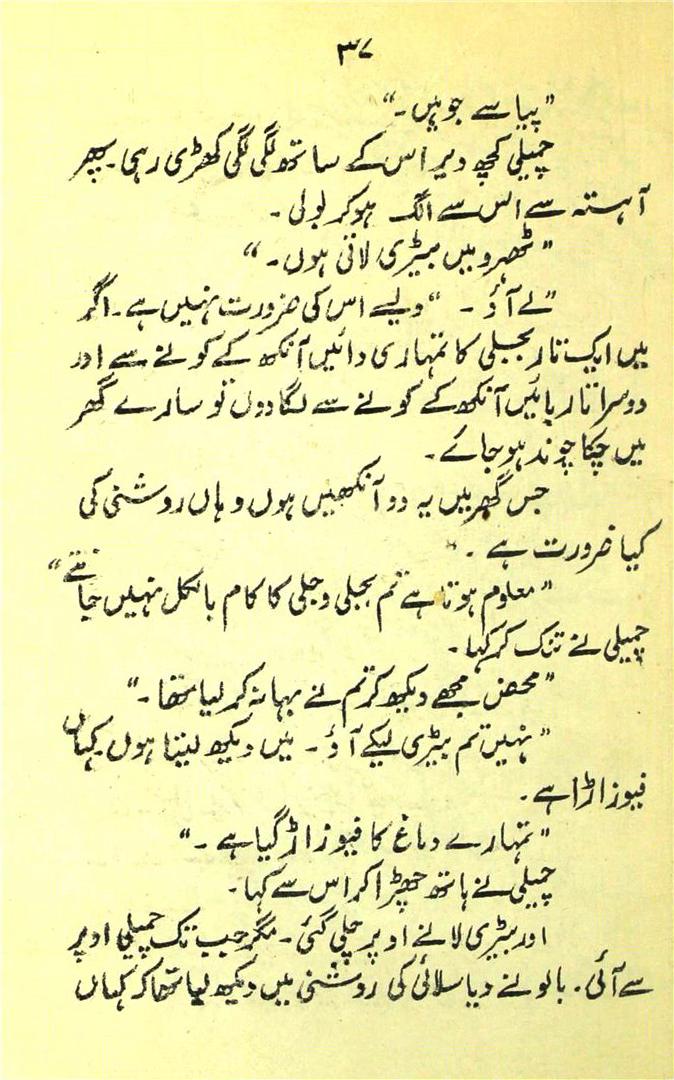 ۳۷
"پیاسے جو ہیں۔"
چمپلی کچھ دیر اس کے ساتھ لگی لگی کھڑی رہی۔ پھر
آہستہ سے اس سے الگ ہو کر بولی۔
"ٹھہرو میں بیٹری لاتی ہوں۔"
"لے آؤ۔ "ویسے اس کی ضرورت نہیں ہے۔ اگر
میں ایک تار بجلی کا تمہاری دائیں آنکھ کے کونے سے اور
دوسرا تار بائیں آنکھ کے کونے سے لگا دوں تو سارے گھر
میں چکا چوند ہو جائے۔
جس گھر میں یہ دو آنکھیں ہوں وہاں روشنی کی
کیا ضرورت ہے۔"
"معلوم ہوتا ہے تم بجلی وجلی کا کام بالکل نہیں جانتے"
چمپلی نے تنک کر کہا۔
"محض مجھے دیکھ کر تم نے بہانہ کر لیا تھا۔"
"نہیں تم بیٹری لیکے آؤ۔ میں دیکھ لیتا ہوں کہاں
فیوز اڑا ہے۔
"تمہارے دماغ کا فیوز اڑ گیا ہے۔"
چمپلی نے ہاتھ چھڑا کر اس سے کہا۔
اور بیٹری لانے اوپر چلی گئی۔ مگر جب تک چمپلی اوپر
سے آئی۔ بالو نے دیا سلائی کی روشنی میں دیکھ لیا تھا کہ کہاں